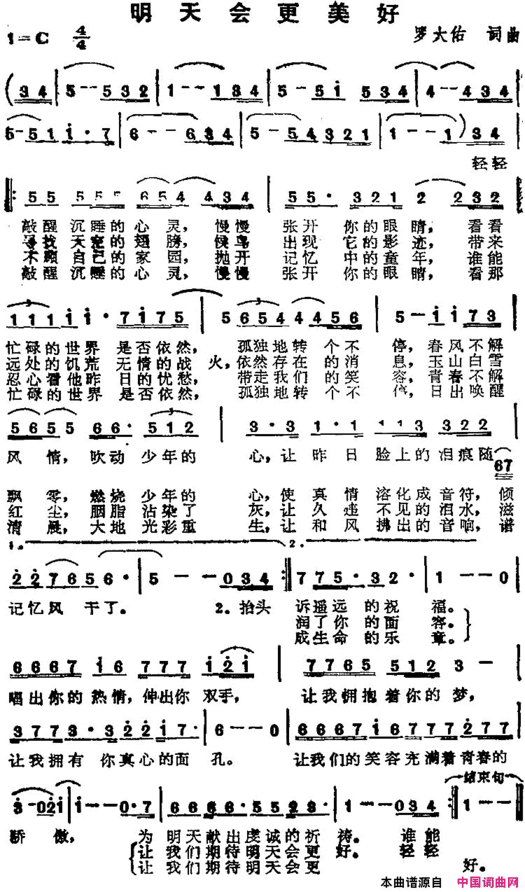 明天会更美好
1=C 4/4 罗大佑 词曲
(34 | 5--532 | 1--134 | 5-51 534 | 4--434 |
5-551 1·7 | 6--634 | 5-54321 | 1--1) 34
轻轻
55 555 654 434 | 55·5 321 2 232
敲醒沉睡的心灵，慢慢 张开 你的眼睛，看看
寻找天空的翅膀，候鸟 出现 它的影迹，带来
不顾自己的家园，抛开 记忆 中的童年，谁能
敲醒沉睡的心灵，慢慢 张开 你的眼睛，看那
忙碌的世界 是否依然， 孤独地转 个不 停，春风不解
远处的饥荒 无情的战 火，依然存在的消 息，玉山白雪
忍心看他昨 日的忧愁， 带走我们 的笑 容，青春不解
忙碌的世界 是否依然， 孤独地转 个不 停，日出唤醒
5655 66·5 512 | 3·3 1·1 111 322
风情，吹动 少年的 心，让 昨日 脸上的 泪痕随
67
飘零，燃烧 少年的 心，使 真情 溶化成音符，倾
红尘，胭脂 沾染了 灰，让 久违 不见的泪水，滋
清晨，大地 光彩重 生，让 和风 拂出的音响，谱
1. 2.
227656· | 5--034 :| 775·32· | 1--0 |
记忆风 干了。 2.抬头 诉遥远 的祝 福。
润了你 的面 容。
成生命 的乐 章。
6667 16 777 121 | 7765 512 3-
唱出你的 热情，伸出你 双手， 让我拥抱着你的 梦，
3773·3221 17· | 6--0 | 6667 1677727
让我拥有 你真心的面 孔。 让我们的笑容充满着青春的
结束句
3-021 | 1--0·7 | 6666·5523 | 1--034 :| 1--
骄 傲， 为 明天献出虔诚的祈 祷。 谁能
让 我们期待明天会更 好。 轻轻
让 我们期待明天会更 好。
本曲谱源自 中国词曲网